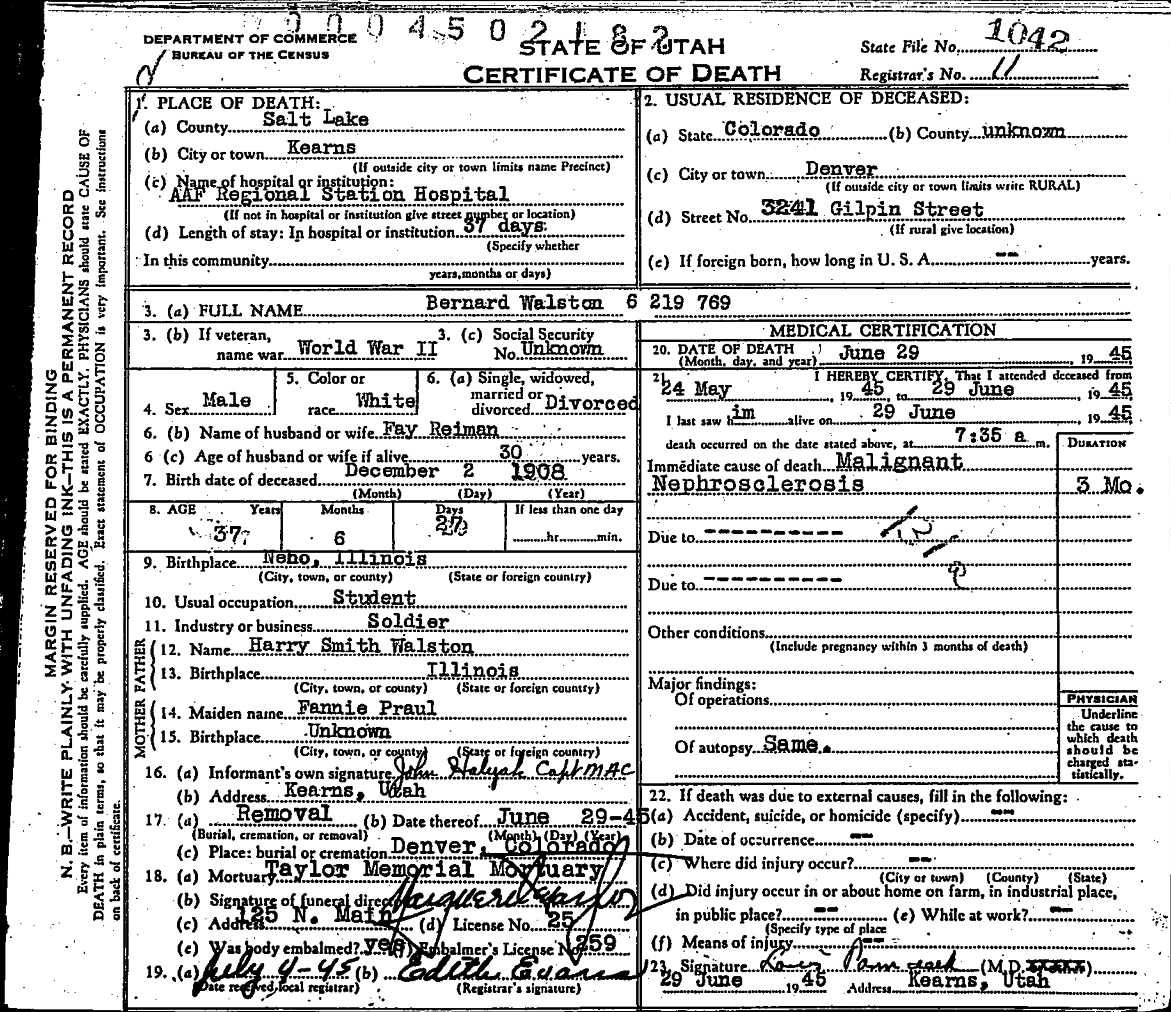 0004502182
DEPARTMENT OF COMMERCE
BUREAU OF THE CENSUS
STATE OF UTAH
CERTIFICATE OF DEATH
State File No. 1042
Registrar's No. 11
MARGIN RESERVED FOR BINDING
N. B.—WRITE PLAINLY WITH UNFADING INK—THIS IS A PERMANENT RECORD
Every item of information should be carefully supplied. AGE should be stated EXACTLY. PHYSICIANS should state CAUSE OF
DEATH in plain terms, so that it may be properly classified. Exact statement of OCCUPATION is very important. See instructions
on back of certificate.
1. PLACE OF DEATH:
(a) County Salt Lake
(b) City or town Kearns
(If outside city or town limits name Precinct)
(c) Name of hospital or institution:
AAF Regional Station Hospital
(If not in hospital or institution give street number or location)
(d) Length of stay: In hospital or institution 37 days
(Specify whether
In this community
years, months or days)
2. USUAL RESIDENCE OF DECEASED:
(a) State Colorado (b) County unknown
(c) City or town Denver
(If outside city or town limits write RURAL)
(d) Street No. 3241 Gilpin Street
(If rural give location)
(e) If foreign born, how long in U. S. A. -- years.
3. (a) FULL NAME Bernard Walston 6 219 769
3. (b) If veteran, name war World War II
3. (c) Social Security No. Unknown
4. Sex Male
5. Color or race White
6. (a) Single, widowed, married or divorced Divorced
6. (b) Name of husband or wife Fay Reiman
6 (c) Age of husband or wife if alive 30 years.
7. Birth date of deceased December 2 1908
(Month) (Day) (Year)
8. AGE Years Months Days If less than one day
37 6 27 hr. min.
9. Birthplace Nebo, Illinois
(City, town, or county) (State or foreign country)
10. Usual occupation Student
11. Industry or business Soldier
FATHER
12. Name Harry Smith Walston
13. Birthplace Illinois
(City, town, or county) (State or foreign country)
MOTHER
14. Maiden name Fannie Praul
15. Birthplace Unknown
(City, town, or county) (State or foreign country)
16. (a) Informant's own signature John Capt MAC
(b) Address Kearns, Utah
17 (a) Removal (b) Date thereof June 29-45
(Burial, cremation, or removal) (Month) (Day) (Year)
(c) Place: burial or cremation Denver, Colorado
18. (a) Mortuary Taylor Memorial Mortuary
(b) Signature of funeral director
(c) Address 125 N. Main (d) License No. 25
(e) Was body embalmed? yes Embalmer's License No. 259
19. (a) July 4-45 (b) Edith Evans
(Date received, local registrar) (Registrar's signature)
MEDICAL CERTIFICATION
20. DATE OF DEATH June 29 19 45
(Month, day, and year)
21. I HEREBY CERTIFY, That I attended deceased from
24 May, 19 45 to 29 June, 19 45
I last saw him alive on 29 June, 19 45
death occurred on the date stated above, at 7:35 a m.
DURATION
Immediate cause of death Malignant
Nephrosclerosis 3 Mo.
Due to ----------
Due to ----------
Other conditions
(Include pregnancy within 3 months of death)
Major findings:
Of operations
Of autopsy Same.
PHYSICIAN
Underline
the cause to
which death
should be
charged sta-
tistically.
22. If death was due to external causes, fill in the following:
(a) Accident, suicide, or homicide (specify) --
(b) Date of occurrence --
(c) Where did injury occur? --
(City or town) (County) (State)
(d) Did injury occur in or about home on farm, in industrial place,
in public place? -- (e) While at work? --
(Specify type of place
(f) Means of injury --
23. Signature (M.D. )
29 June 19 45 Address Kearns, Utah